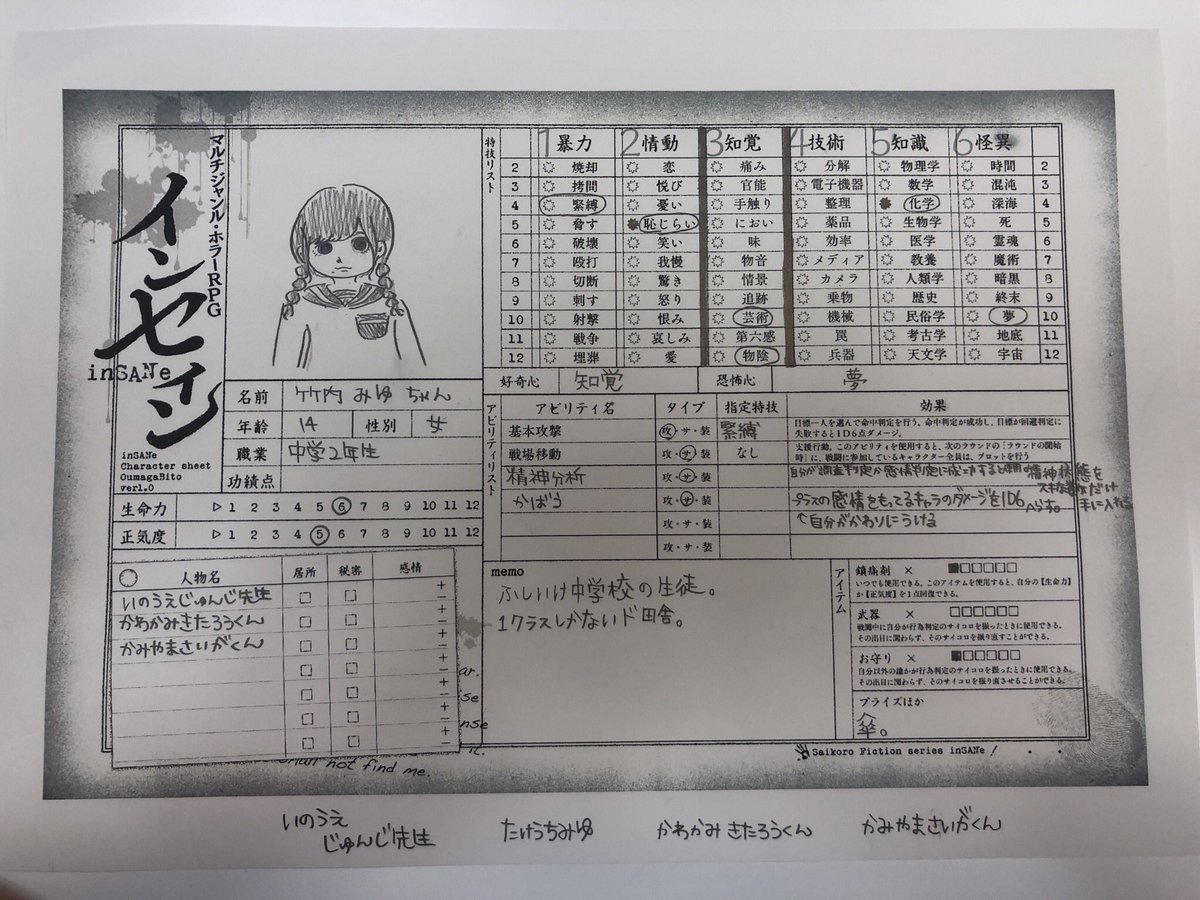 マルチジャンル・ホラーRPG
インセイン
inSANe
inSANe
Character sheet
OumagaBito
ver1.0
名前 竹内 みゆ ちゃん
年齢 14 性別 女
職業 中学2年生
功績点
生命力 ▷1 2 3 4 5 6 7 8 9 10 11 12
正気度 ▷1 2 3 4 5 6 7 8 9 10 11 12
人物名 居所 秘密 感情
いのうえじゅんじ先生 + −
かわかみきたろうくん + −
かみやまさいがくん + −
+ −
+ −
+ −
+ −
ar.
ise
nse
it.
shall not find me.
特技リスト
1 暴力 2 情動 3 知覚 4 技術 5 知識 6 怪異
2 焼却 恋 痛み 分解 物理学 時間 2
3 拷問 悦び 官能 電子機器 数学 混沌 3
4 緊縛 憂い 手触り 整理 化学 深海 4
5 脅す 恥じらい におい 薬品 生物学 死 5
6 破壊 笑い 味 効率 医学 霊魂 6
7 殴打 我慢 物音 メディア 教養 魔術 7
8 切断 驚き 情景 カメラ 人類学 暗黒 8
9 刺す 怒り 追跡 乗物 歴史 終末 9
10 射撃 恨み 芸術 機械 民俗学 夢 10
11 戦争 哀しみ 第六感 罠 考古学 地底 11
12 埋葬 愛 物陰 兵器 天文学 宇宙 12
好奇心 知覚 恐怖心 夢
アビリティリスト
アビリティ名 タイプ 指定特技 効果
基本攻撃 攻・サ・装 緊縛 目標一人を選んで命中判定を行う。命中判定が成功し、目標が回避判定に
失敗すると1D6点ダメージ。
戦場移動 攻・サ・装 なし 支援行動。このアビリティを使用すると、次のラウンドの「ラウンドの開始
時」に、戦闘に参加しているキャラクター全員は、プロットを行う
精神分析 攻・サ・装 自分が調査判定か感情判定に成功すると相手の精神状態を
スキな数だけ
手に入れる
かばう 攻・サ・装 プラスの感情をもってるキャラのダメージを1D6
へらす。
攻・サ・装 ↑自分がかわりにうける
攻・サ・装
memo
ふしいけ中学校の生徒。
1クラスしかないド田舎。
アイテム
鎮痛剤 ×
いつでも使用できる。このアイテムを使用すると、自分の【生命力】
か【正気度】を1点回復できる。
武器 ×
戦闘中に自分が行為判定のサイコロを振ったときに使用できる。
その出目に関わらず、そのサイコロを振り直すことができる。
お守り ×
自分以外の誰かが行為判定のサイコロを振ったときに使用できる。
その出目に関わらず、そのサイコロを振り直させることができる。
プライズほか
傘。
Saikoro Fiction series inSANe!
いのうえ
じゅんじ先生
たけうちみゆ
かわかみ きたろうくん
かみやまさいがくん